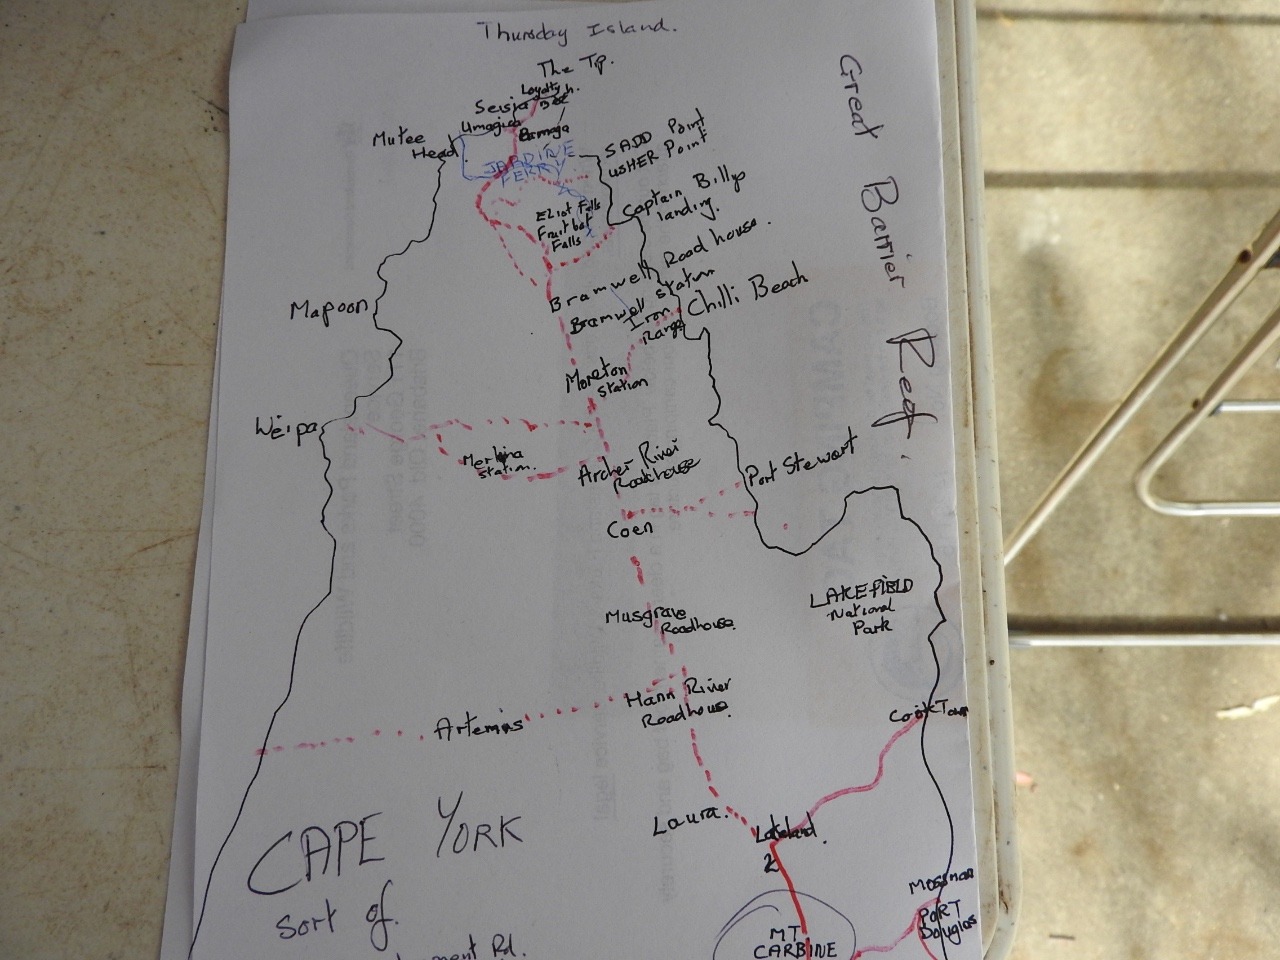 Thursday Island.
The Tip.
Loyalty
Seisia
Umagico
Bamaga
Mutee
Head
JARDINE
FERRY
SADD Point
USHER Point
Great Barrier Reef.
Captain Billys
landing.
Eliot Falls
Fruitbat
Falls
Bramwell Road house.
Bramwell Station
Iron
Range
Chilli Beach
Mapoon
Moreton
Station
Weipa
Merluna
Station.
Archer River
Roadhouse
Port Stewart
Coen
LAKEFIELD
National
Park
Musgrave
Roadhouse.
Hann River
Roadhouse.
Artemis
CookTown
Laura.
Lakeland.
2
CAPE YORK
Sort of.
Mossman
PORT
Douglas
MT
CARBINE
Rd.